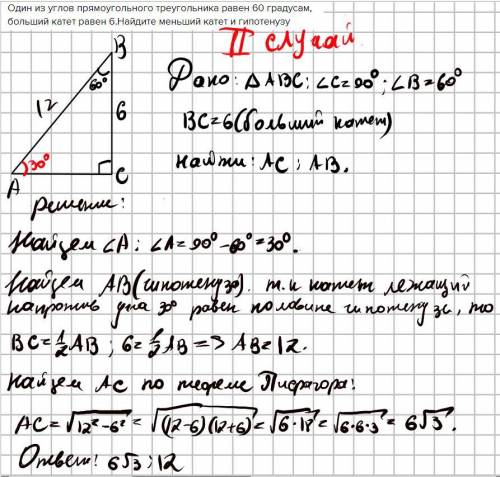 Один из углов прямоугольного треугольника равен 60 градусам,
больший катет равен 6.Найдите меньший катет и гипотенузу
II случай
B
60°
12
6
30°
A
C
Дано: △ABC; ∠C=90°; ∠B=60°
BC=6(больший катет)
Найти: AC; AB.
Решение:
Найдем ∠A: ∠A=90°-60°=30°.
Найдем AB(гипотенузу). т.к катет лежащий
напротив угла 30° равен половине гипотенузы, то
BC=½AB; 6=½AB=>AB=12.
Найдем AC по теореме Пифагора:
AC=√12²-6²=√(12-6)(12+6)=√6·18=√6·6·3=6√3.
Ответ: 6√3; 12